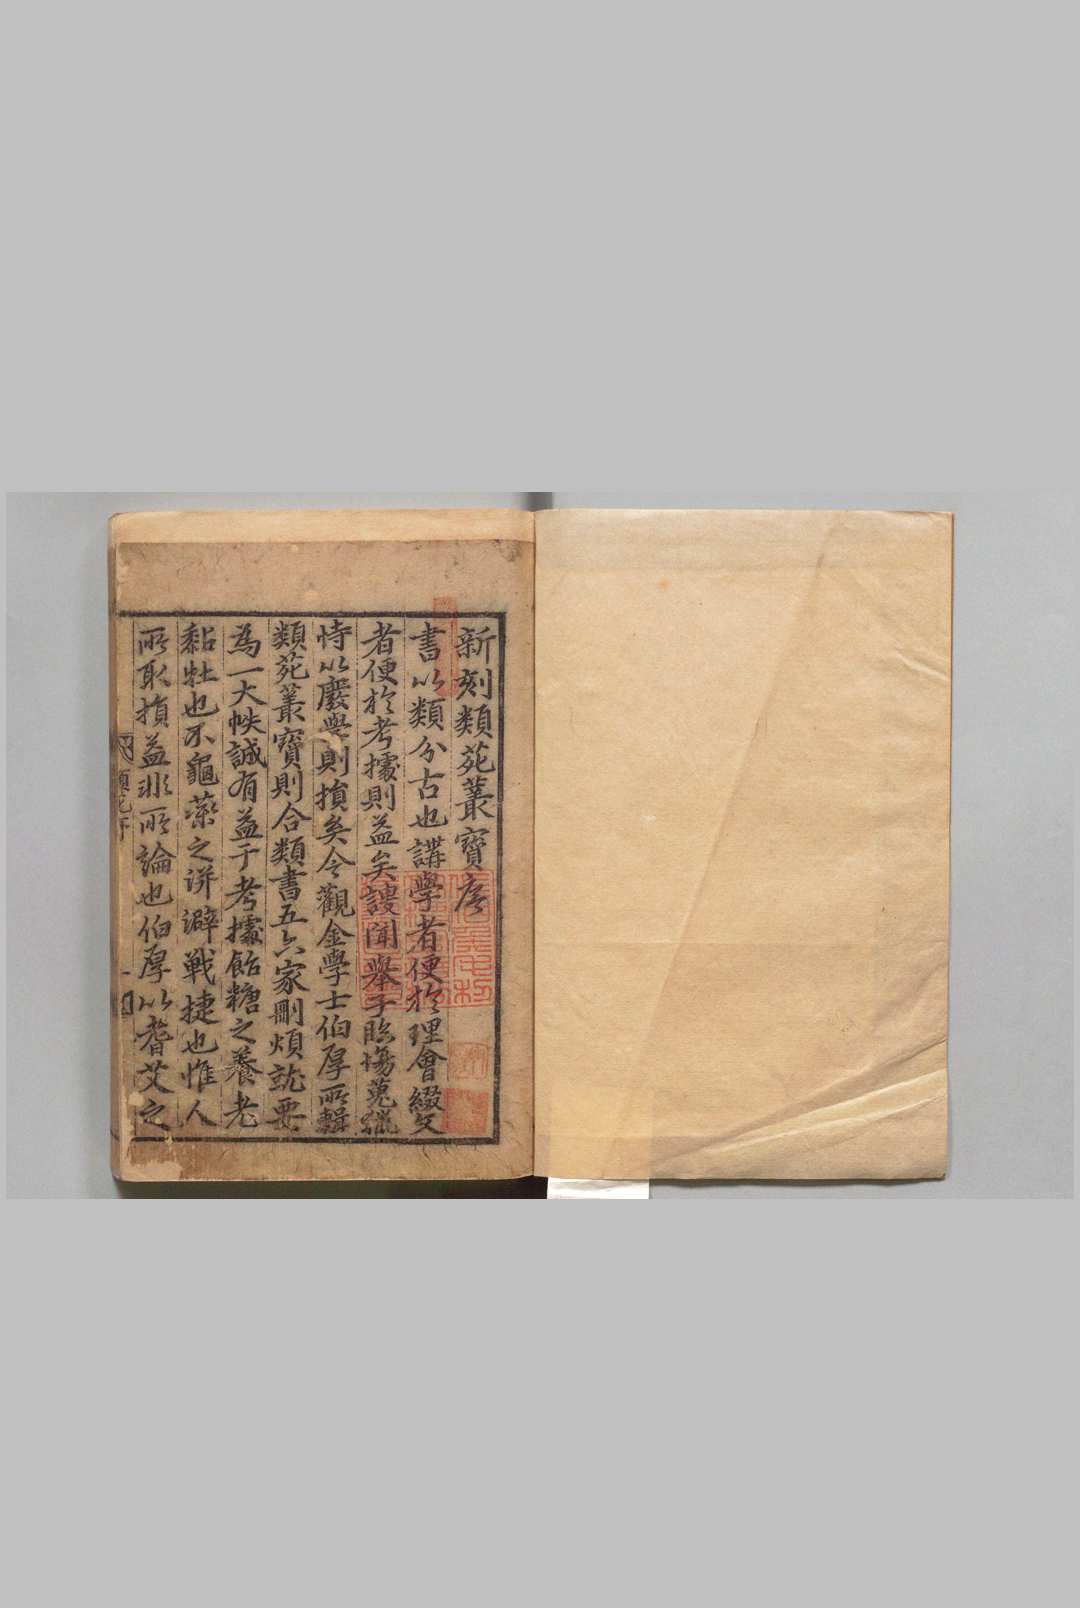 新刻類苑叢寶序
書以類分古也講學者便於理會綴文
者便於考據則益矣謏聞擧子臨場蒐獵
恃以廢學則損矣今觀金學士伯厚所輯
類苑叢寶則合類書五六家刪煩就要
為一大帙誠有益于考據飴糖之養老
黏牡也不龜藥之洴澼戰捷也惟人
所取損益非所論也伯厚以耆艾之